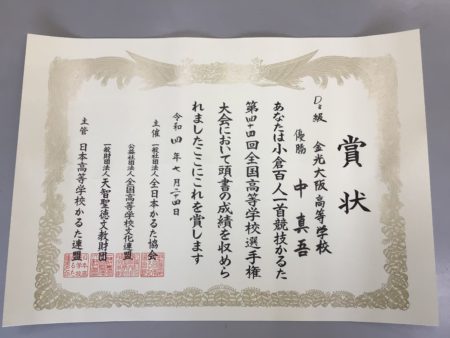 賞状
D2級 金光大阪高等学校
優勝 中真吾
あなたは小倉百人一首競技かるた
第四十四回全国高等学校選手権
大会において頭書の成績を収めら
れましたここにこれを賞します
令和四年七月二十四日
主催 一般社団法人全日本かるた協会
公益社団法人全国高等学校文化連盟
一般財団法人天智聖徳文教財団
主管 日本高等学校かるた連盟